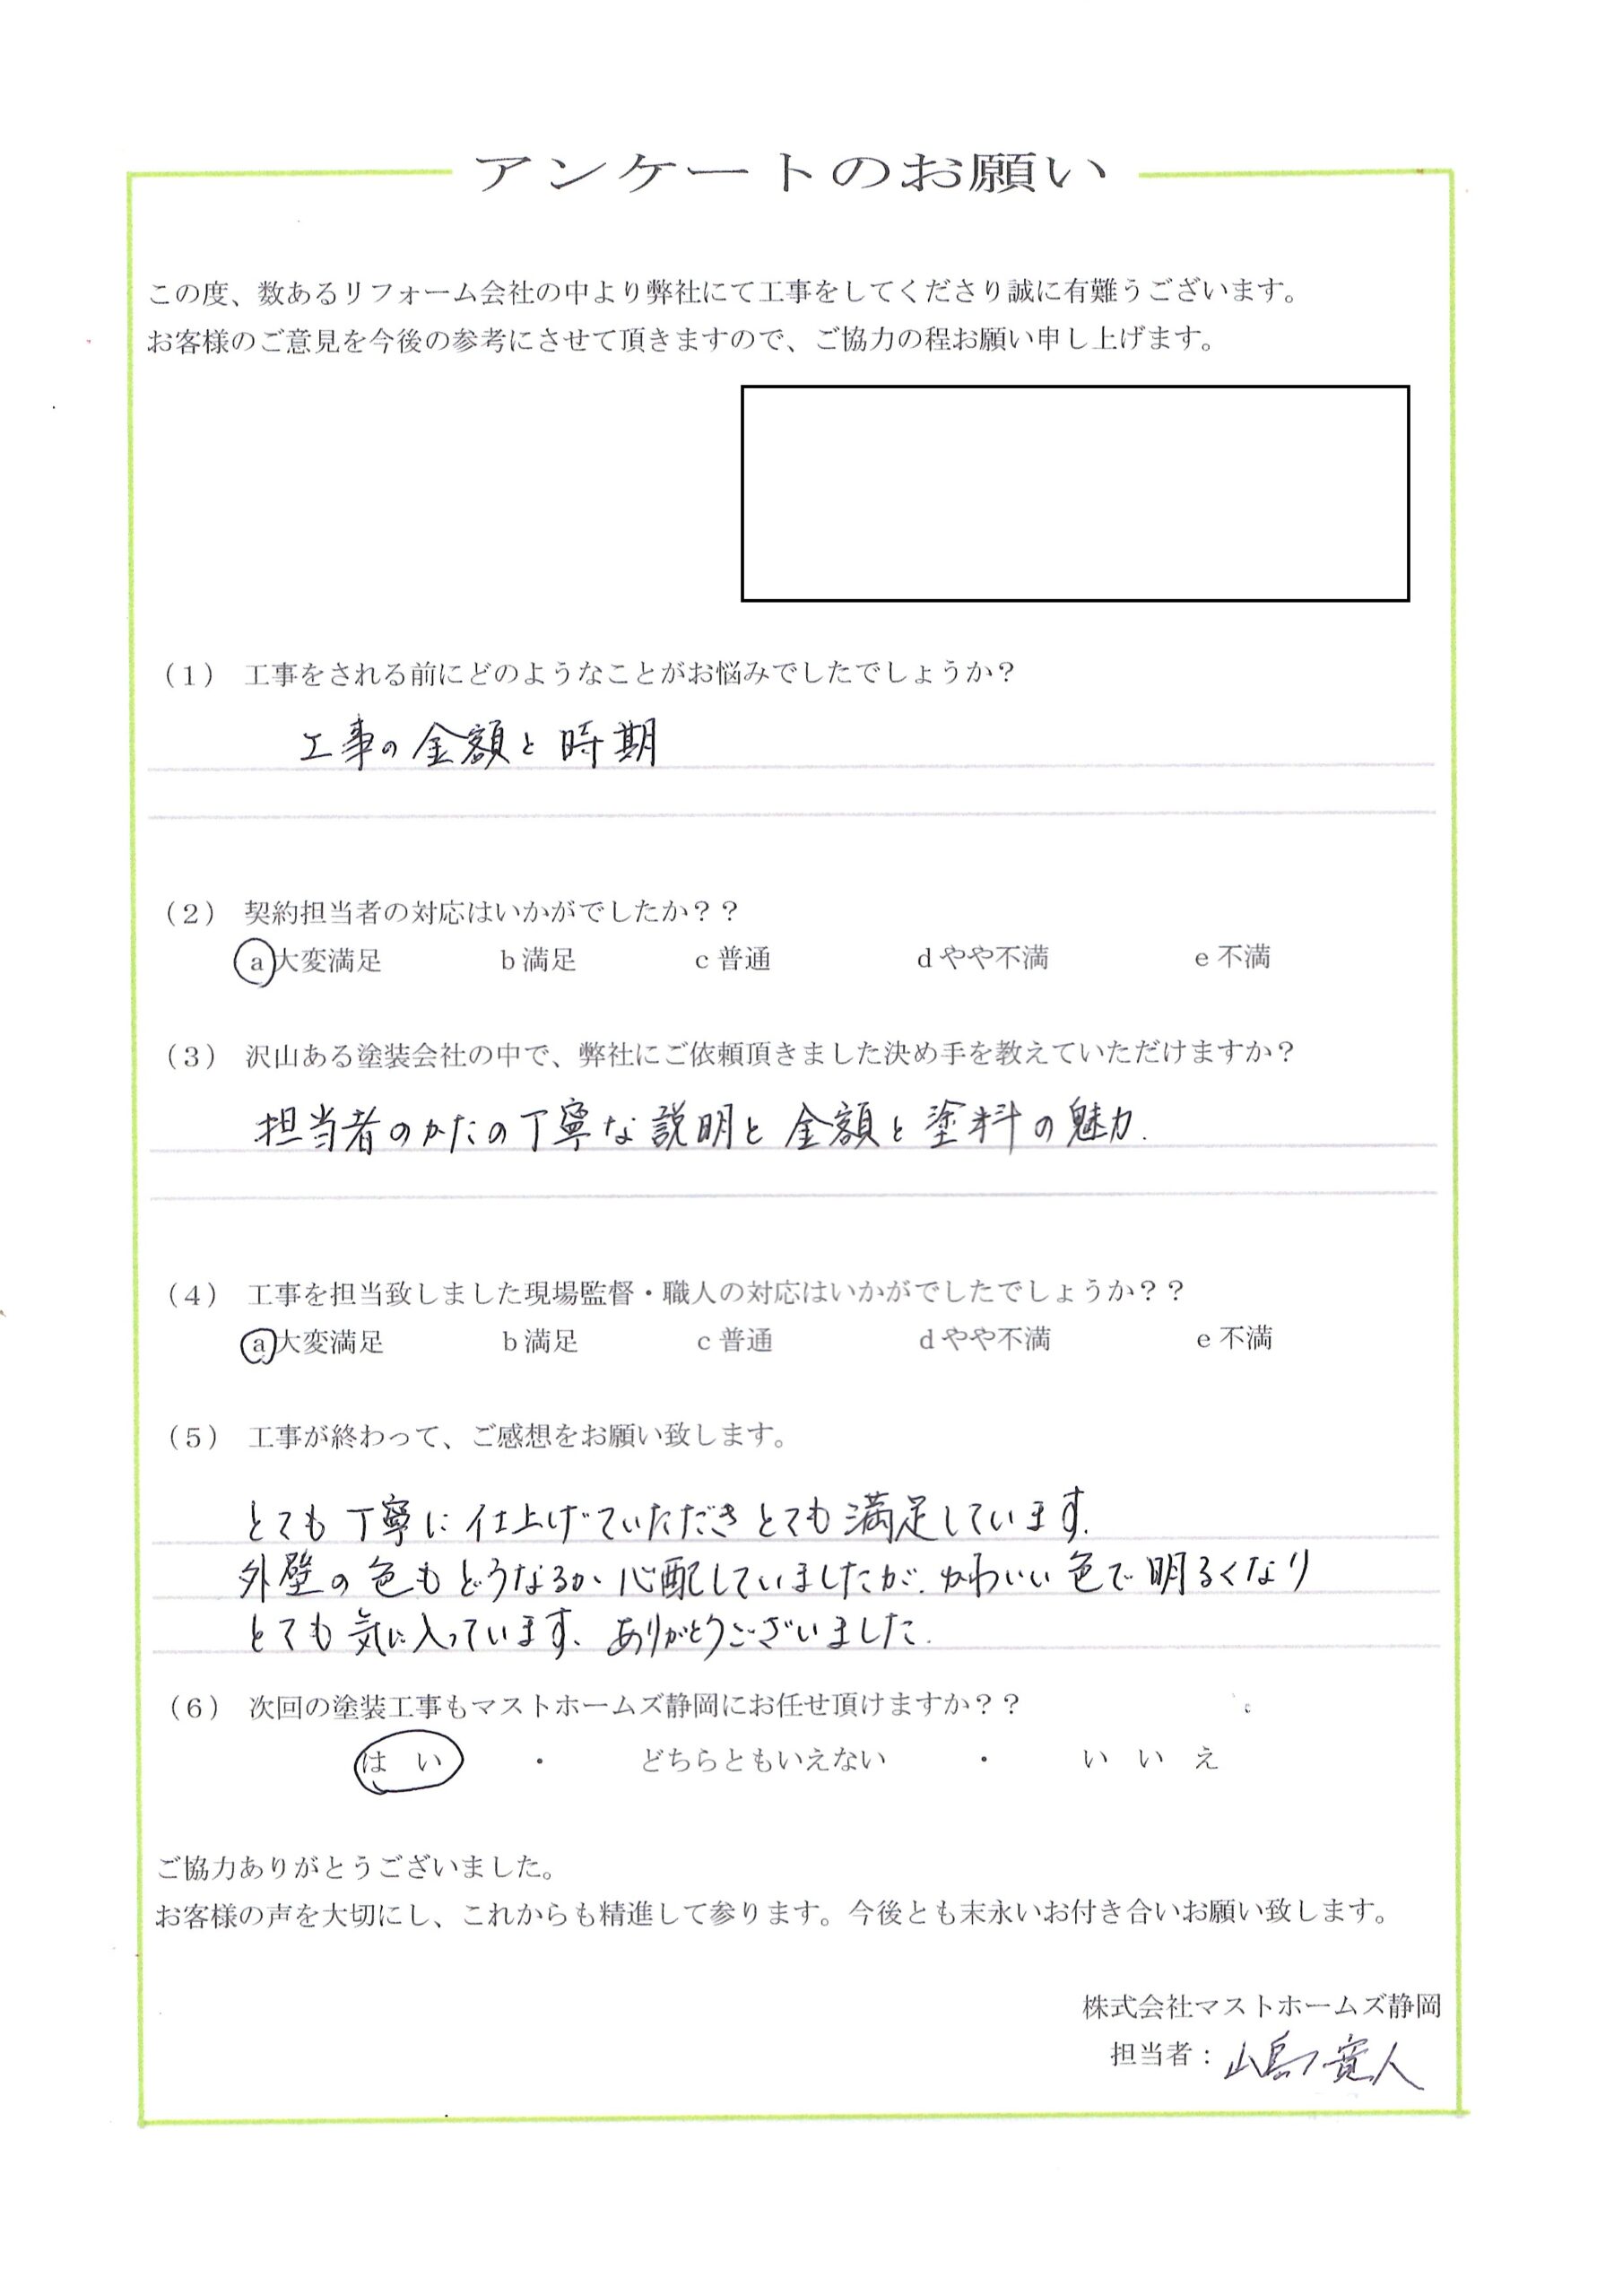 アンケートのお願い
この度、数あるリフォーム会社の中より弊社にて工事をしてくださり誠に有難うございます。
お客様のご意見を今後の参考にさせて頂きますので、ご協力の程お願い申し上げます。
（1） 工事をされる前にどのようなことがお悩みでしたでしょうか？
工事の金額と時期
（2） 契約担当者の対応はいかがでしたか？？
a 大変満足 b 満足 c 普通 d やや不満 e 不満
（3） 沢山ある塗装会社の中で、弊社にご依頼頂きました決め手を教えていただけますか？
担当者のかたの丁寧な説明と金額と塗料の魅力.
（4） 工事を担当致しました現場監督・職人の対応はいかがでしたでしょうか？？
a 大変満足 b 満足 c 普通 d やや不満 e 不満
（5） 工事が終わって、ご感想をお願い致します。
とても丁寧に仕上げていただきとても満足しています.
外壁の色もどうなるか心配していましたが.かわいい色で明るくなり
とても気に入っています、ありがとうございました.
（6） 次回の塗装工事もマストホームズ静岡にお任せ頂けますか？？
はい ・ どちらともいえない ・ いいえ
ご協力ありがとうございました。
お客様の声を大切にし、これからも精進して参ります。今後とも末永いお付き合いお願い致します。
株式会社マストホームズ静岡
担当者：山島寛人